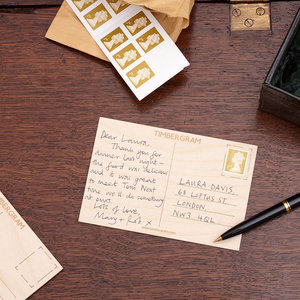 TIMBERGRAM
Dear Laura,
Thank you for
dinner last night –
the food was delicious
and it was great
to meet Tom. Next
time we'll do something
at ours.
Lots of love,
Mary + Rob x
LAURA DAVIS,
68 LOFTUS ST
LONDON,
NW3 4QL
TIMBERGRAM